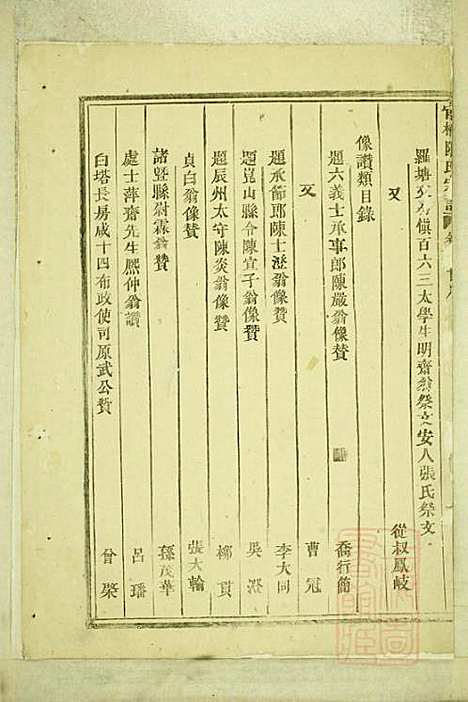 羅塘交派慎百六三太學生明齋翁祭文安人張氏祭文
又 從叔鳳岐
像讚類目錄
題六義士承事郎陳嚴翁像贊 喬行簡
又 曹冠
題承節郎陳士澄翁像贊 李大同
題崑山縣令陳宣子翁像贊 吳澄
題辰州太守陳炎翁像贊 柳貫
貞白翁像贊 張大輪
諸暨縣尉霖翁贊 孫茂華
處士萍齋先生熙仲翁讚 呂璠
白塔長房咸十四布政使司原武公贊 曾棨